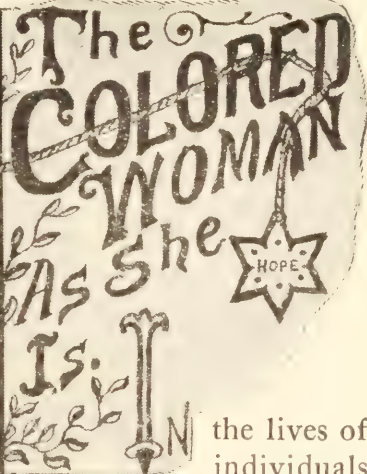 The
COLORED
WOMAN
As She
Is.
HOPE
IN the lives of
individuals